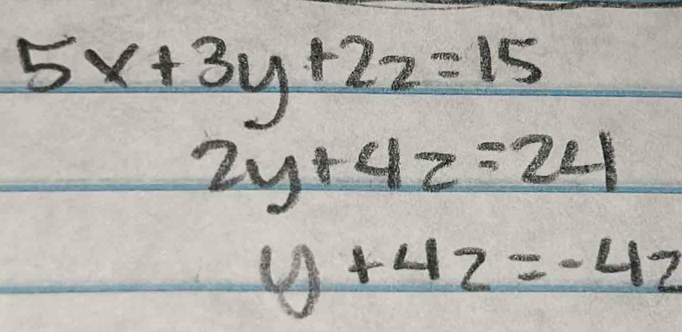 5x+3y+2z=15
2y+4z=24
y+4z=-4z